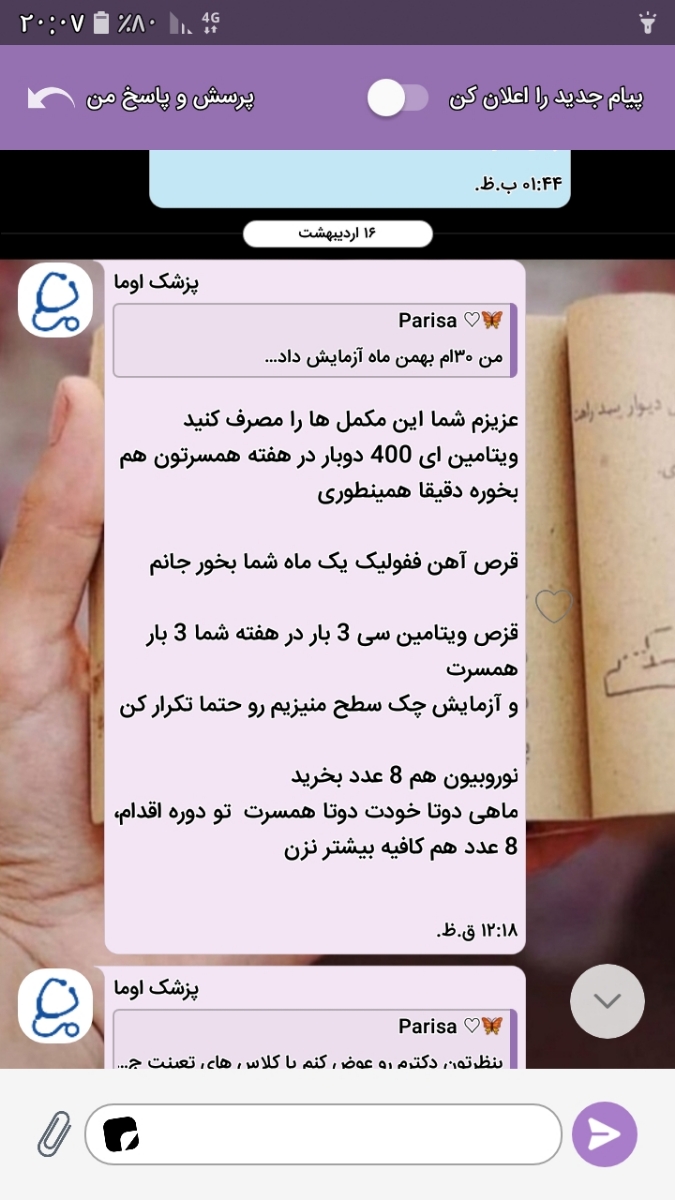 ۲۰:۰۷ ٪۸۰ 4G
پیام جدید را اعلان کن پرسش و پاسخ من
۰۱:۴۴ ب.ظ.
۱۶ اردیبهشت
پزشک اوما
Parisa ♡🦋
من ۳۰ام بهمن ماه آزمایش داد...
عزیزم شما این مکمل ها را مصرف کنید
ویتامین ای 400 دوبار در هفته همسرتون هم
بخوره دقیقا همینطوری
قرص آهن ففولیک یک ماه شما بخور جانم
قزص ویتامین سی 3 بار در هفته شما 3 بار
همسرت
و آزمایش چک سطح منیزیم رو حتما تکرار کن
نوروبیون هم 8 عدد بخرید
ماهی دوتا خودت دوتا همسرت تو دوره اقدام،
8 عدد هم کافیه بیشتر نزن
۱۲:۱۸ ق.ظ.
پزشک اوما
Parisa ♡🦋
بنظرتون دکترم رو عوض کنم یا کلاس های تعینت ج...